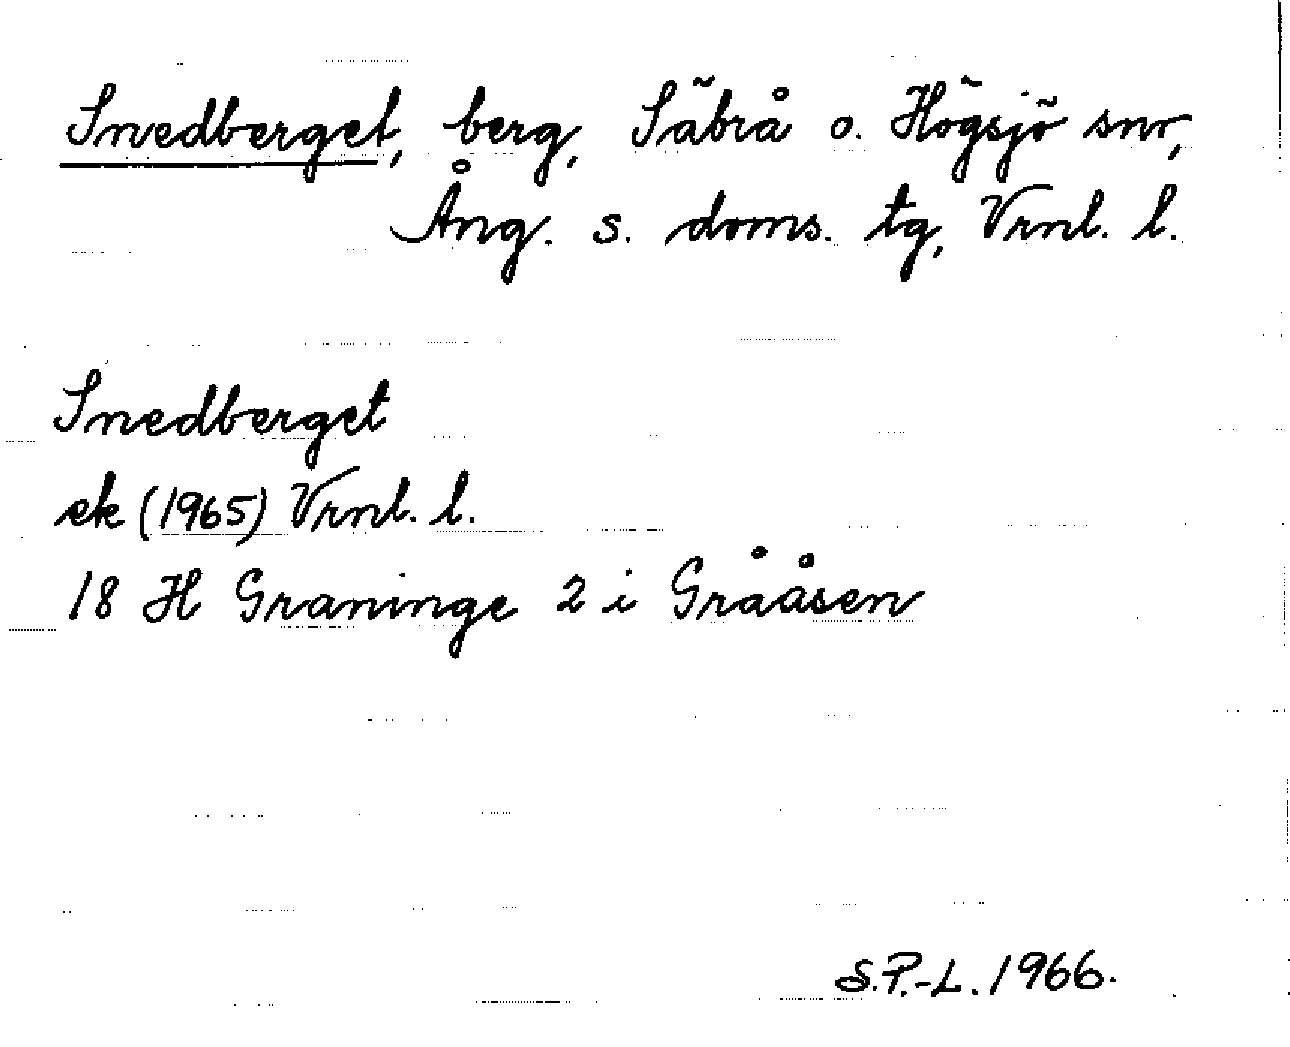 Snedberget, berg, Säbrå o. Högsjö snr,
Ång. s. doms. tg, Vrnl. l.
Snedberget
ek (1965) Vrnl. l.
18 H Graninge 2 i Grååsen
S.P.-L. 1966.